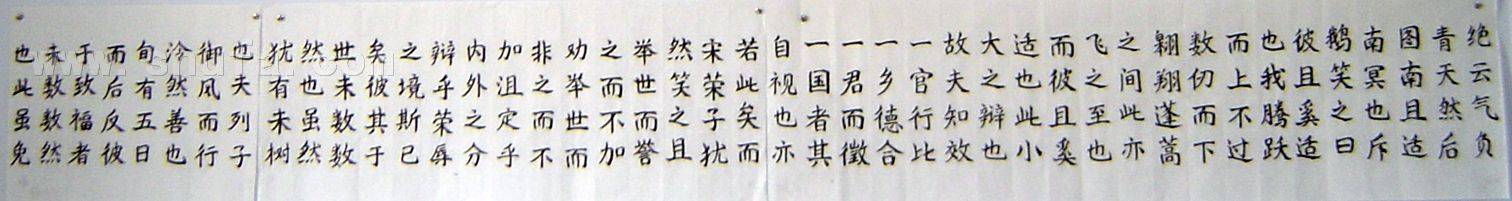 绝云气负
青天然后
图南且适
南冥也斥
鹅笑之曰
彼且奚适
也我腾跃
而上不过
数仞而下
翱翔蓬蒿
之间此亦
飞之至也
而彼且奚
适也此小
大之辩也
故夫知效
一官行比
一乡德合
一君而徵
一国者其
自视也亦
若此矣而
宋荣子犹
然笑之且
举世而誉
之而不加
劝举世而
非之而不
加沮定乎
内外之分
辩乎荣辱
之境斯已
矣彼其于
世未数数
然也虽然
犹有未树
也夫列子
御风而行
泠然善也
旬有五日
而后反彼
于致福者
未数数然
也此虽免